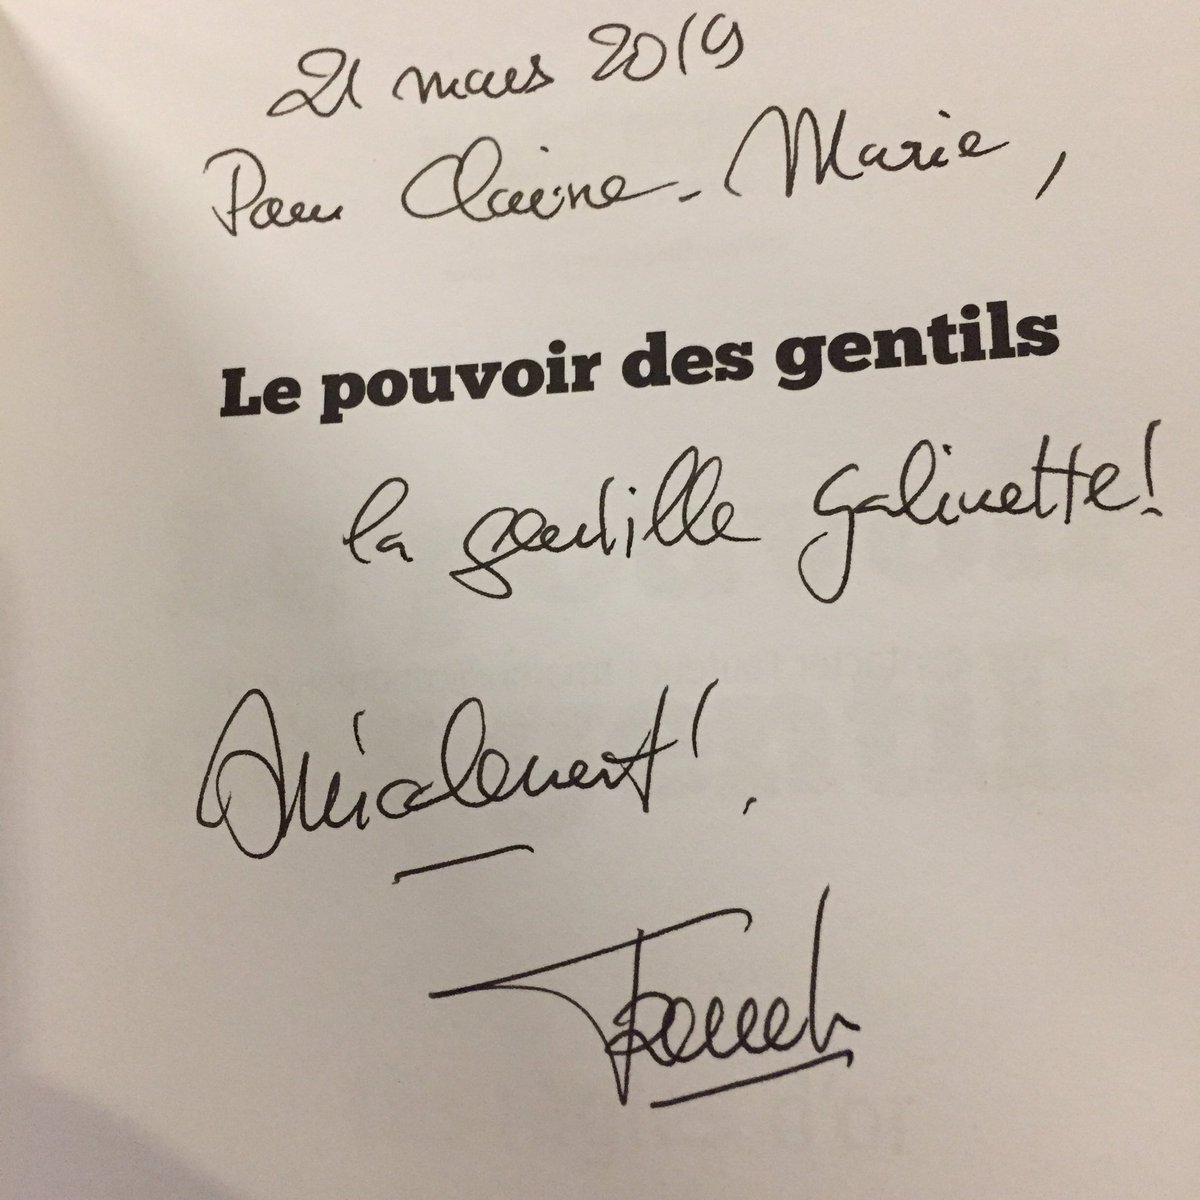 21 mars 2019
Pour Claire-Marie,
Le pouvoir des gentils
la gentille galinette!
Amicalement!